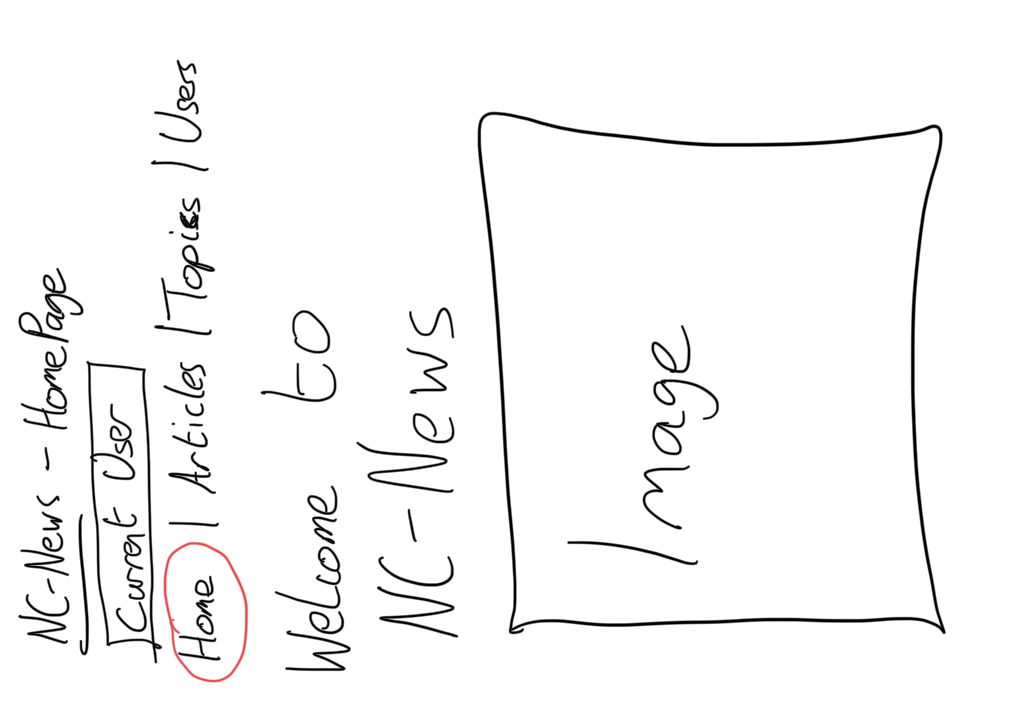 NC-News - HomePage
Current User
Home | Articles | Topics | Users
Welcome to
NC-News
Image